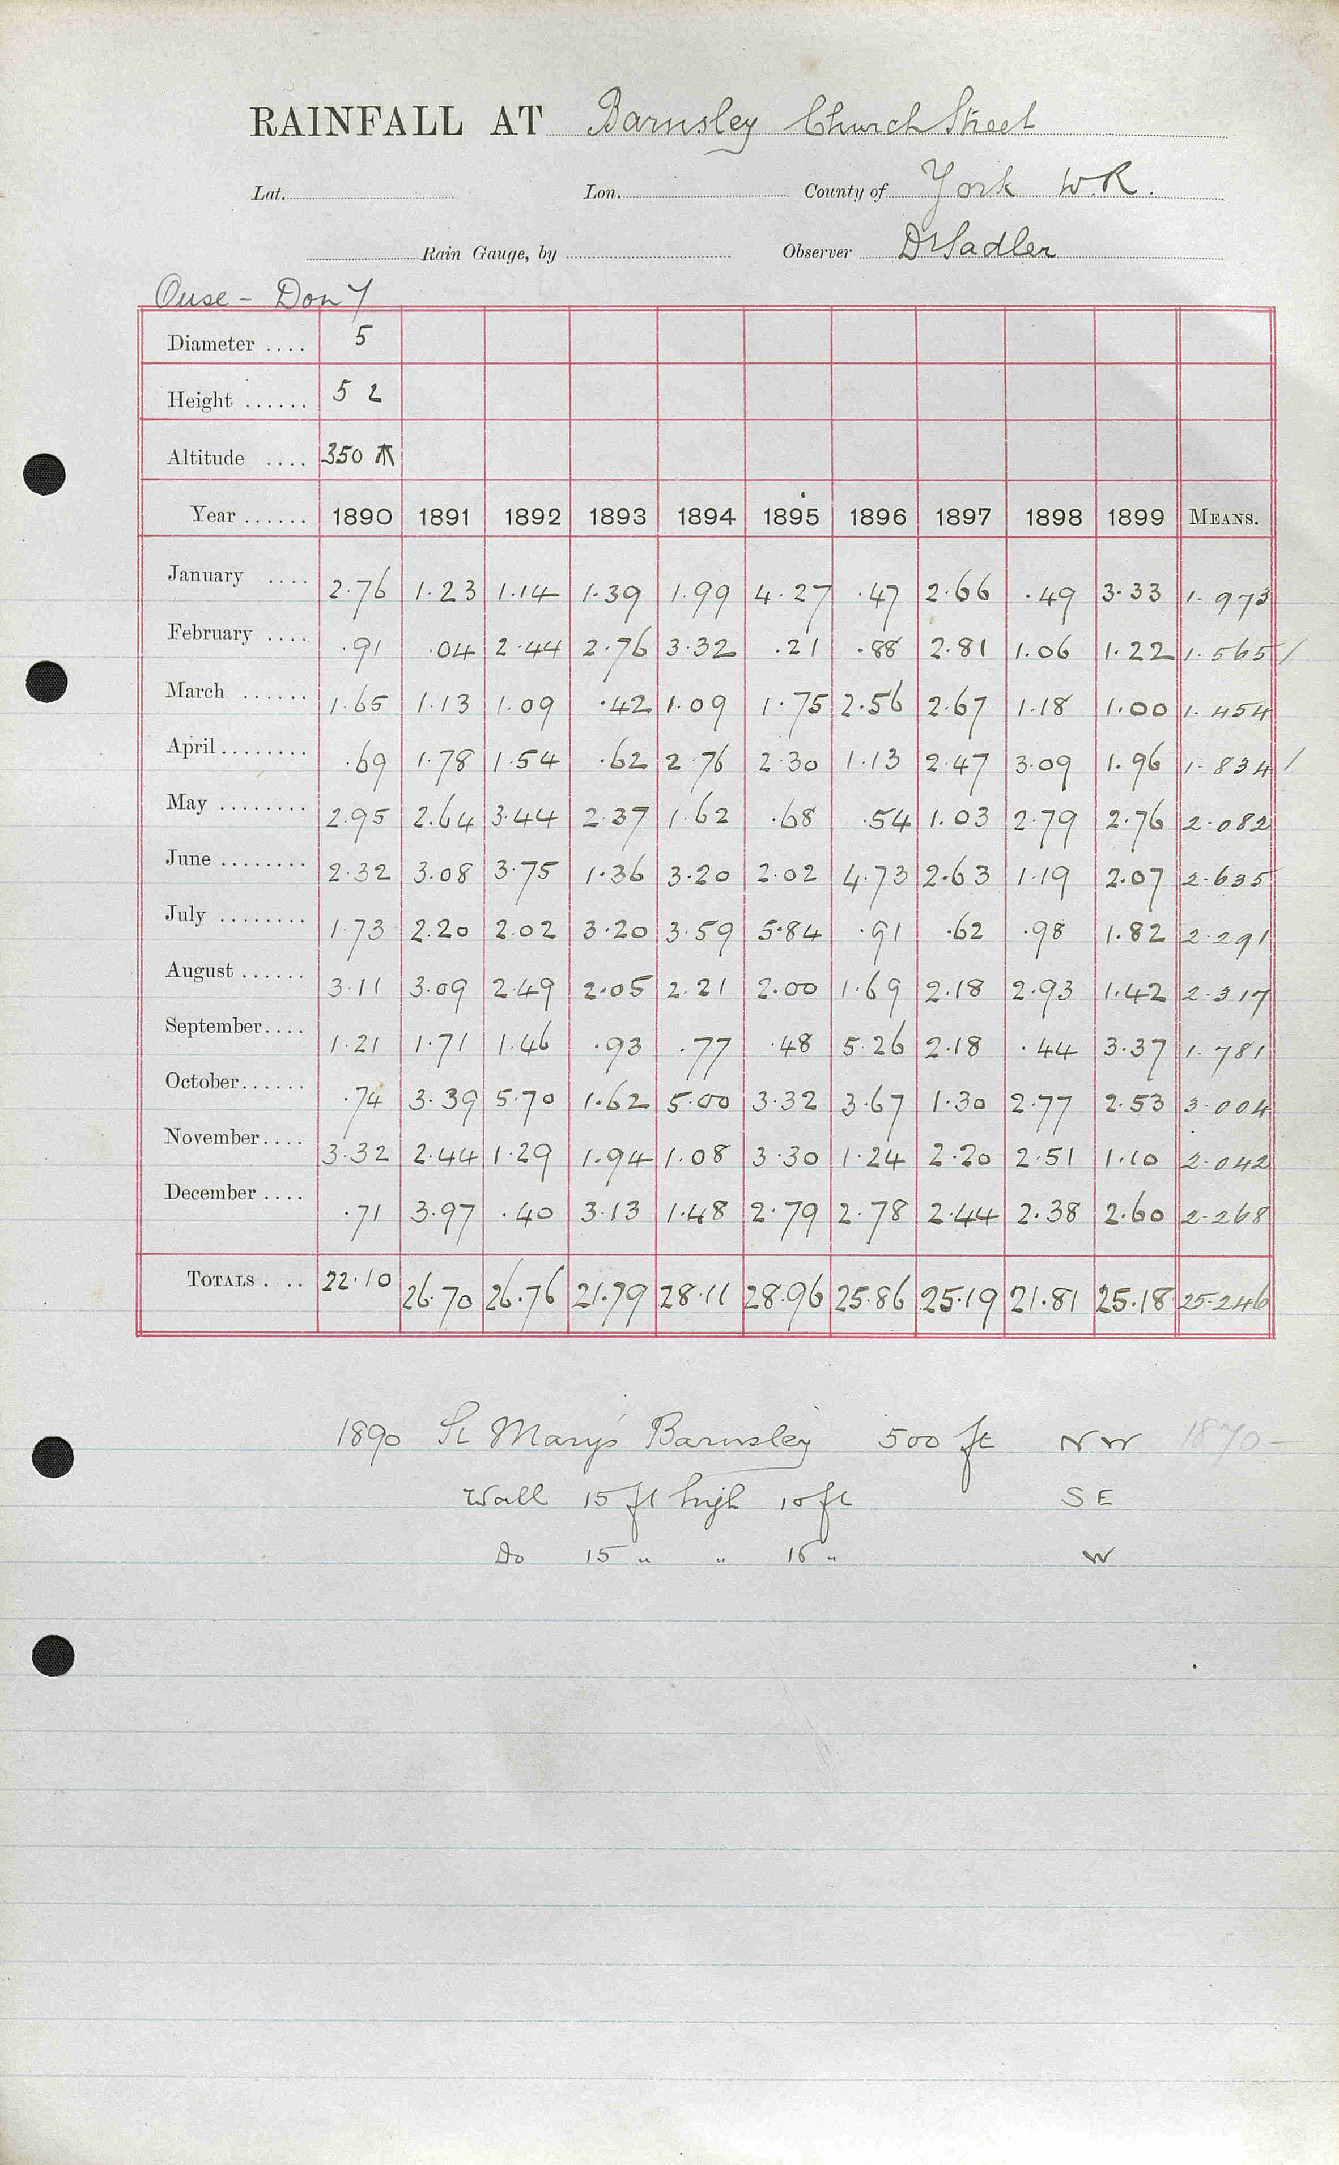 RAINFALL AT Barnsley Church Street
Lat. Lon. County of York W.R.
Rain Gauge, by Observer Dr Sadler
Ouse - Don
Diameter .... 5
Height ...... 5 2
Altitude .... 350
Year ...... 1890 1891 1892 1893 1894 1895 1896 1897 1898 1899 MEANS.
January .... 2.76 1.23 1.14 1.39 1.99 4.27 .47 2.66 .49 3.33 1.973
February .... .91 .04 2.44 2.76 3.32 .21 .88 2.81 1.06 1.22 1.565 /
March ...... 1.65 1.13 1.09 .42 1.09 1.75 2.56 2.67 1.18 1.00 1.454
April ........ .69 1.78 1.54 .62 2.76 2.30 1.13 2.47 3.09 1.96 1.834 /
May ........ 2.95 2.64 3.44 2.37 1.62 .68 .54 1.03 2.79 2.76 2.082
June ........ 2.32 3.08 3.75 1.36 3.20 2.02 4.73 2.63 1.19 2.07 2.635
July ........ 1.73 2.20 2.02 3.20 3.59 5.84 .91 .62 .98 1.82 2.291
August ...... 3.11 3.09 2.49 2.05 2.21 2.00 1.69 2.18 2.93 1.42 2.317
September.... 1.21 1.71 1.46 .93 .77 .48 5.26 2.18 .44 3.37 1.781
October...... .74 3.39 5.70 1.62 5.00 3.32 3.67 1.30 2.77 2.53 3.004
November.... 3.32 2.44 1.29 1.94 1.08 3.30 1.24 2.20 2.51 1.10 2.042
December .... .71 3.97 .40 3.13 1.48 2.79 2.78 2.44 2.38 2.60 2.268
TOTALS . .. 22.10 26.70 26.76 21.79 28.11 28.96 25.86 25.19 21.81 25.18 25.246
1890 St Mary's Barnsley 500 ft NW 1870-
Wall 15 ft high 10 ft SE
Do 15 " " 16 " W